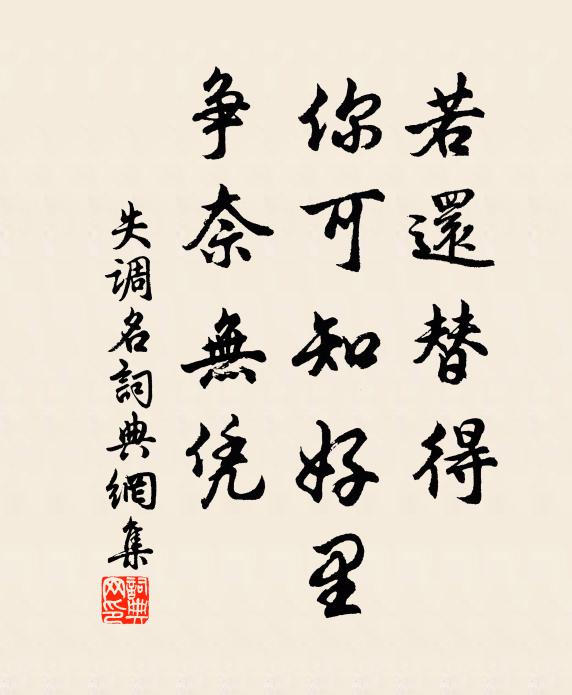 若還替得
你可知好里
争奈無凭
失调名詞典網集
詞典网印